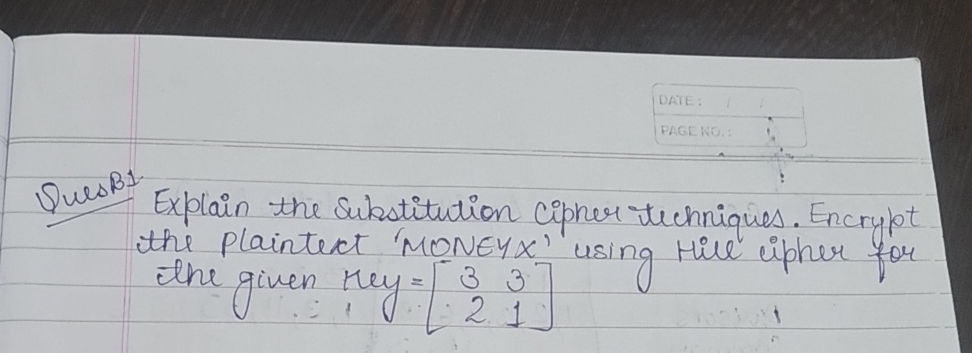 DATE: / /
PAGE NO.:
Ques B1 Explain the Substitution cipher techniques. Encrypt
the plaintext 'MONEYX' using Hill cipher for
the given key = [3 3
2 1]